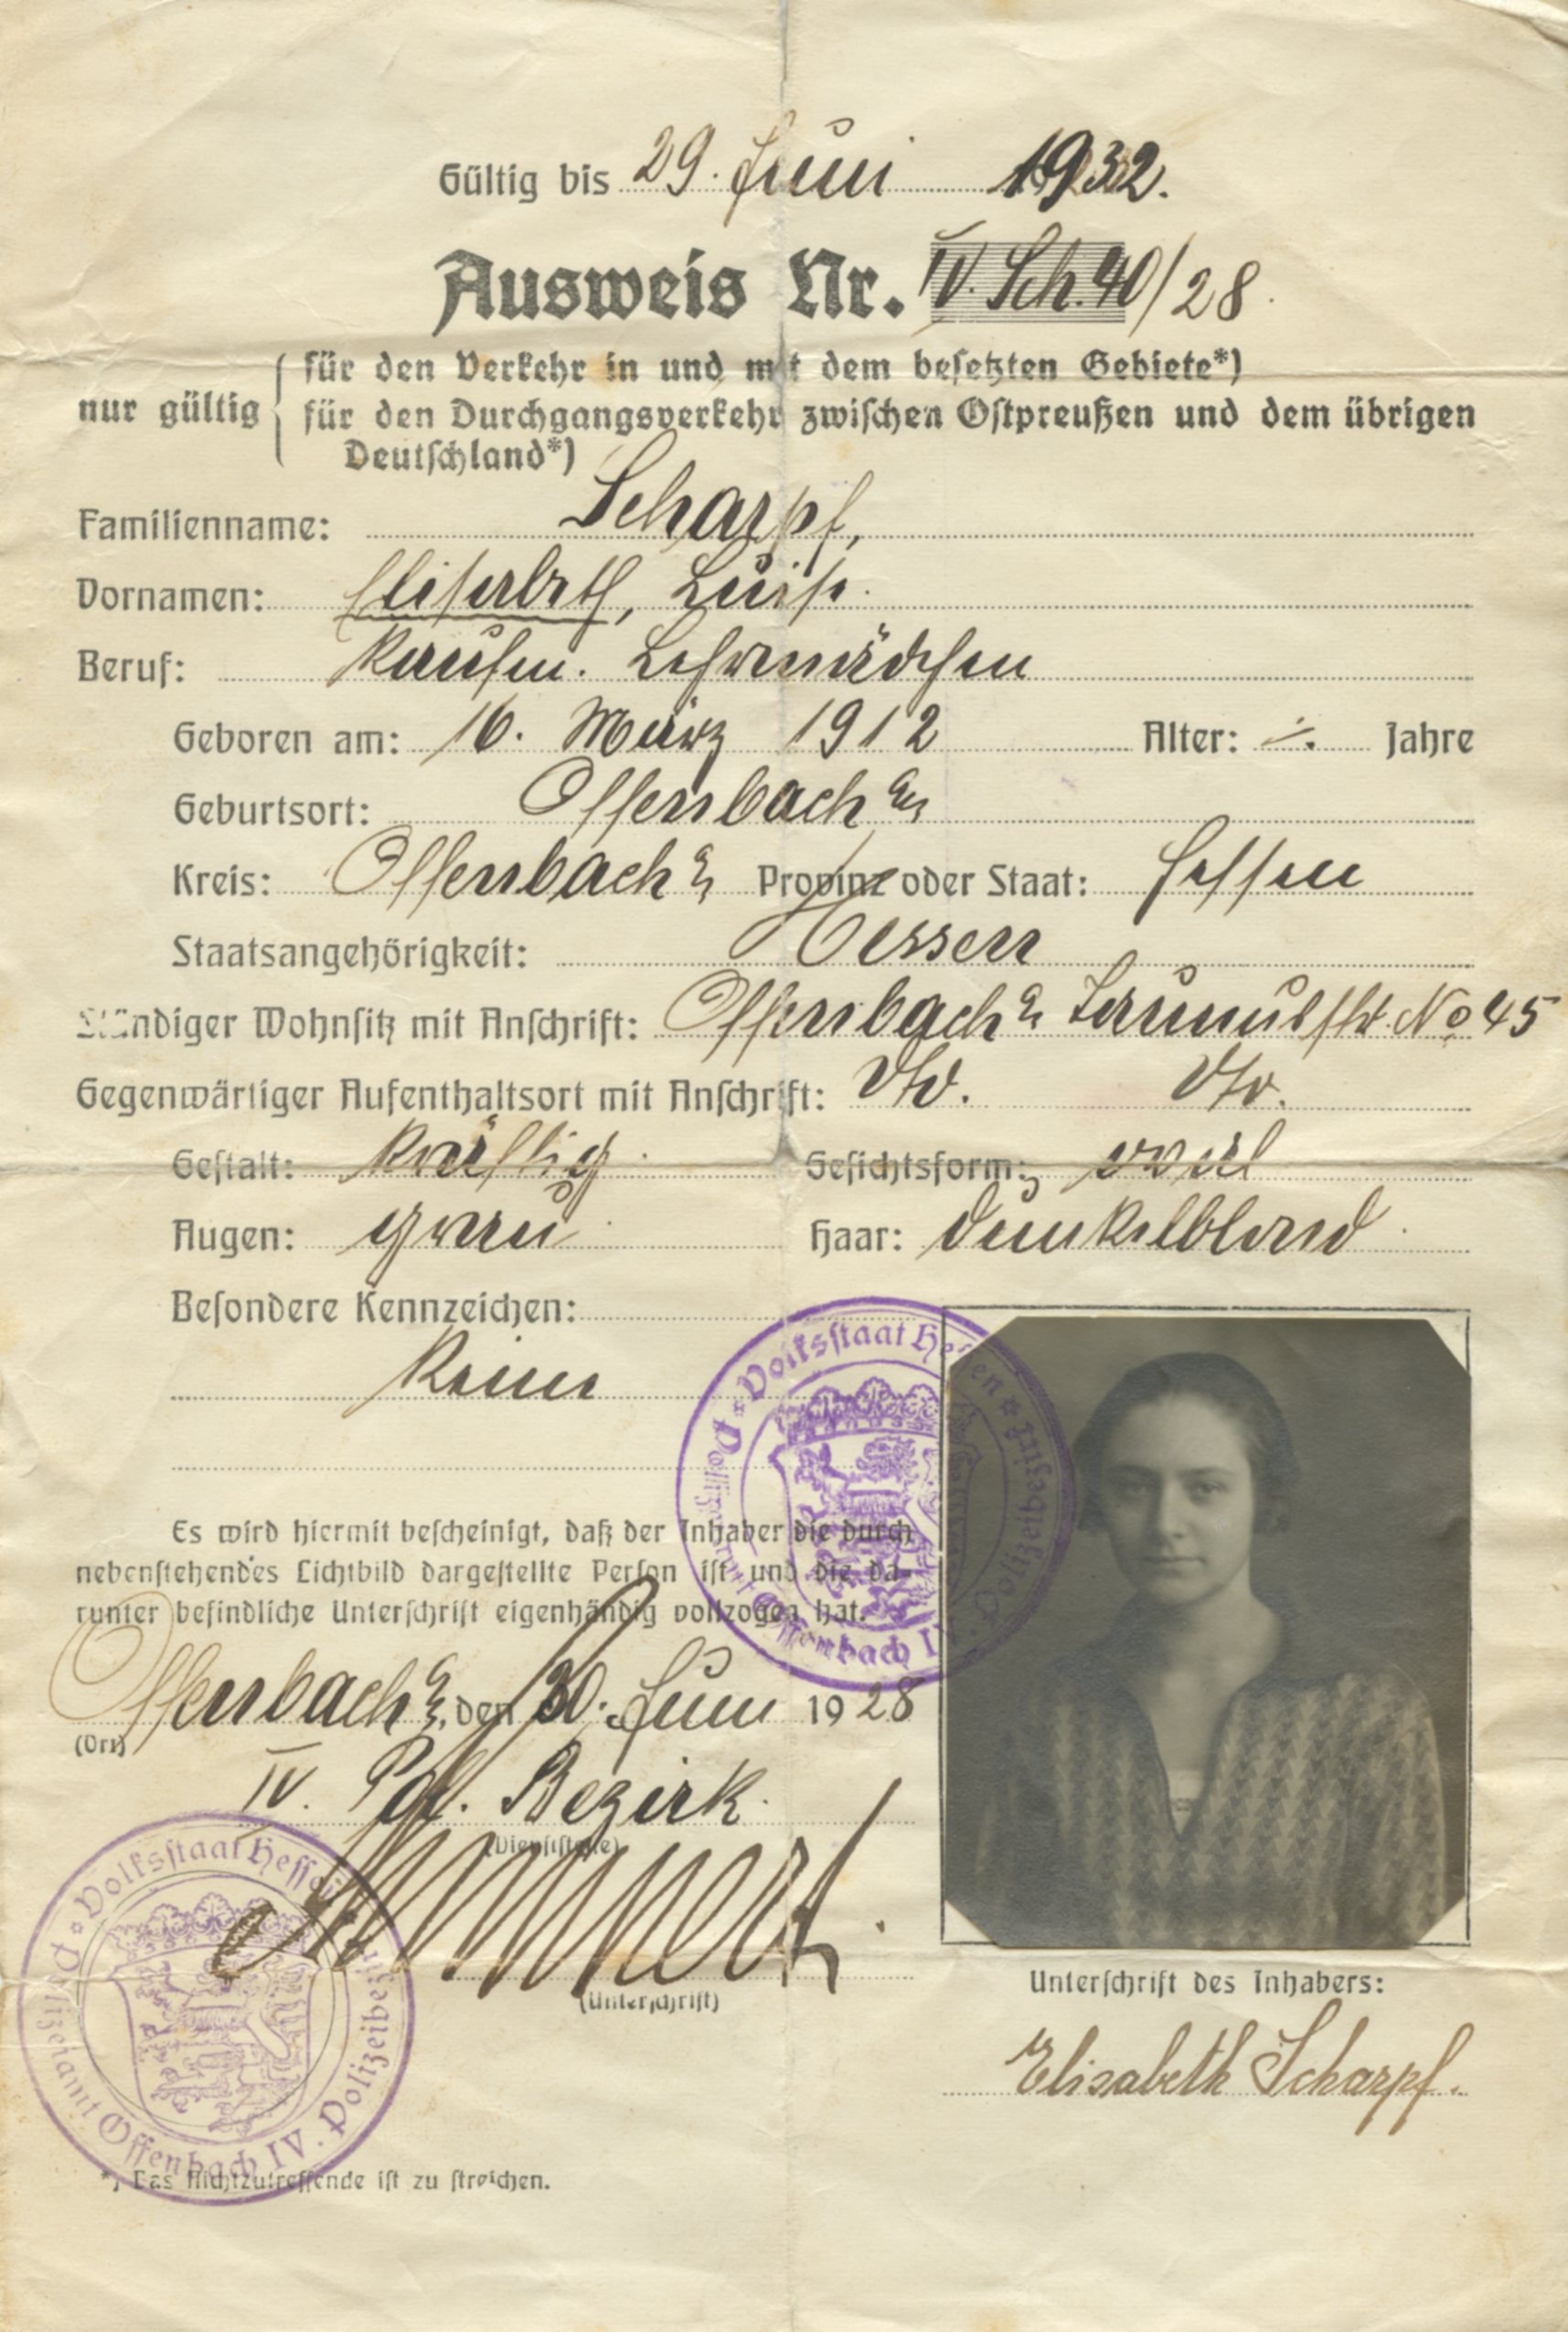 Gültig bis 29. Juni 1932.
Ausweis Nr. IV. Sch. 40/28
nur gültig
für den Verkehr in und mit dem besetzten Gebiete*)
für den Durchgangsverkehr zwischen Ostpreußen und dem übrigen
Deutschland*)
Familienname: Scharpf,
Vornamen: Elisabeth, Luise.
Beruf: Kaufm. Lehrmädchen
Geboren am: 16. März 1912 Alter: ./. Jahre
Geburtsort: Offenbach a/M
Kreis: Offenbach a/M Provinz oder Staat: Hessen
Staatsangehörigkeit: Hessen
Ständiger Wohnsitz mit Anschrift: Offenbach a/M No 45
Gegenwärtiger Aufenthaltsort mit Anschrift: Dto. Dto.
Gestalt: kräftig. Gesichtsform: oval
Augen: grau. Haar: dunkelblond.
Besondere Kennzeichen:
Keine
Es wird hiermit bescheinigt, daß der Inhaber die durch
nebenstehendes Lichtbild dargestellte Person ist und die da-
runter befindliche Unterschrift eigenhändig vollzogen hat.
Offenbach a/M, den 30. Juni 1928
(Ort)
IV. Pol. Bezirk.
(Dienststelle)
(Unterschrift)
Volksstaat Hessen * Polizeiamt Offenbach IV. Polizeibezirk
Volksstaat Hessen * Polizeiamt Offenbach IV. Polizeibezirk
Unterschrift des Inhabers:
Elisabeth Scharpf.
*) Das Nichtzutreffende ist zu streichen.